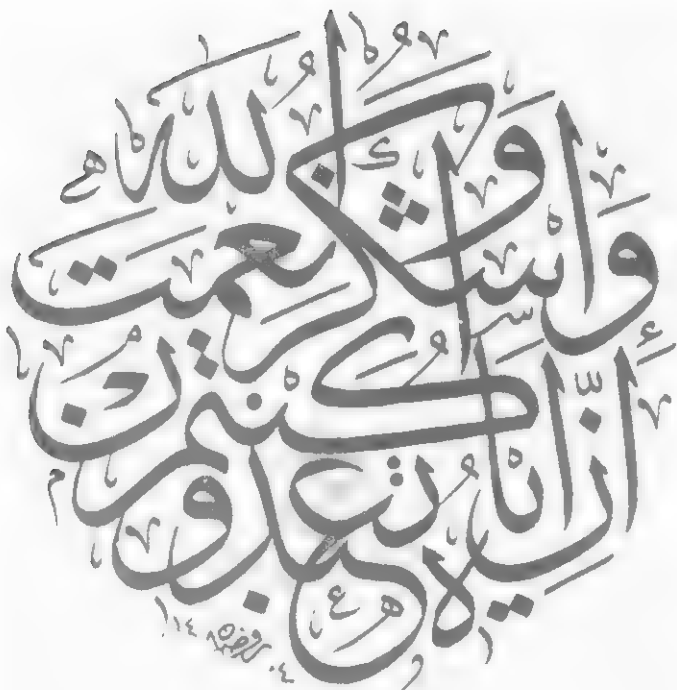 واشكروا نعمت الله إن كنتم إياه تعبدون